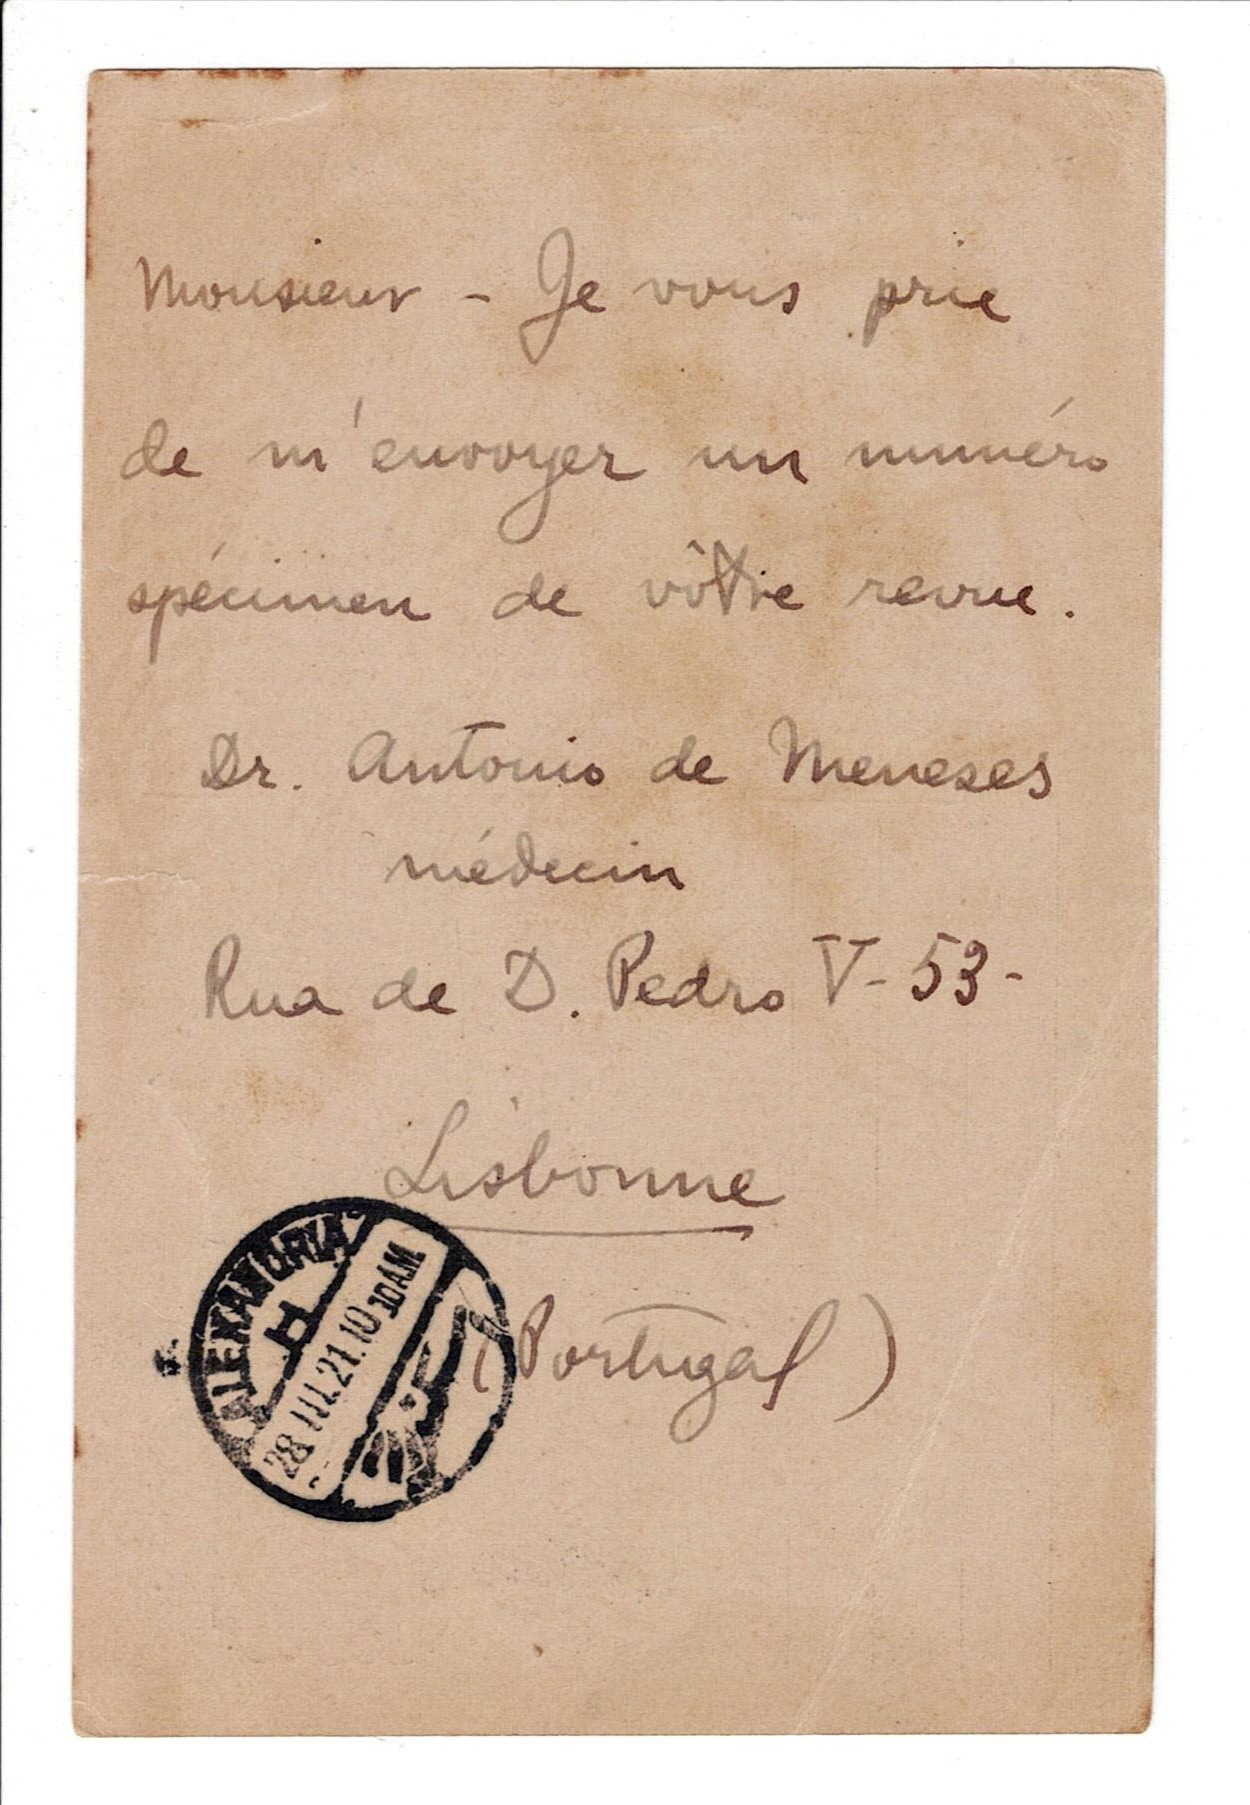 Monsieur - Je vous prie
de m'envoyer un numéro
spécimen de vôtre revue.
Dr. Antonio de Meneses
médecin
Rua de D. Pedro V - 53 -
Lisbonne
(Portugal)
ALEXANDRIA
H
28 III. 21. 10
AM.